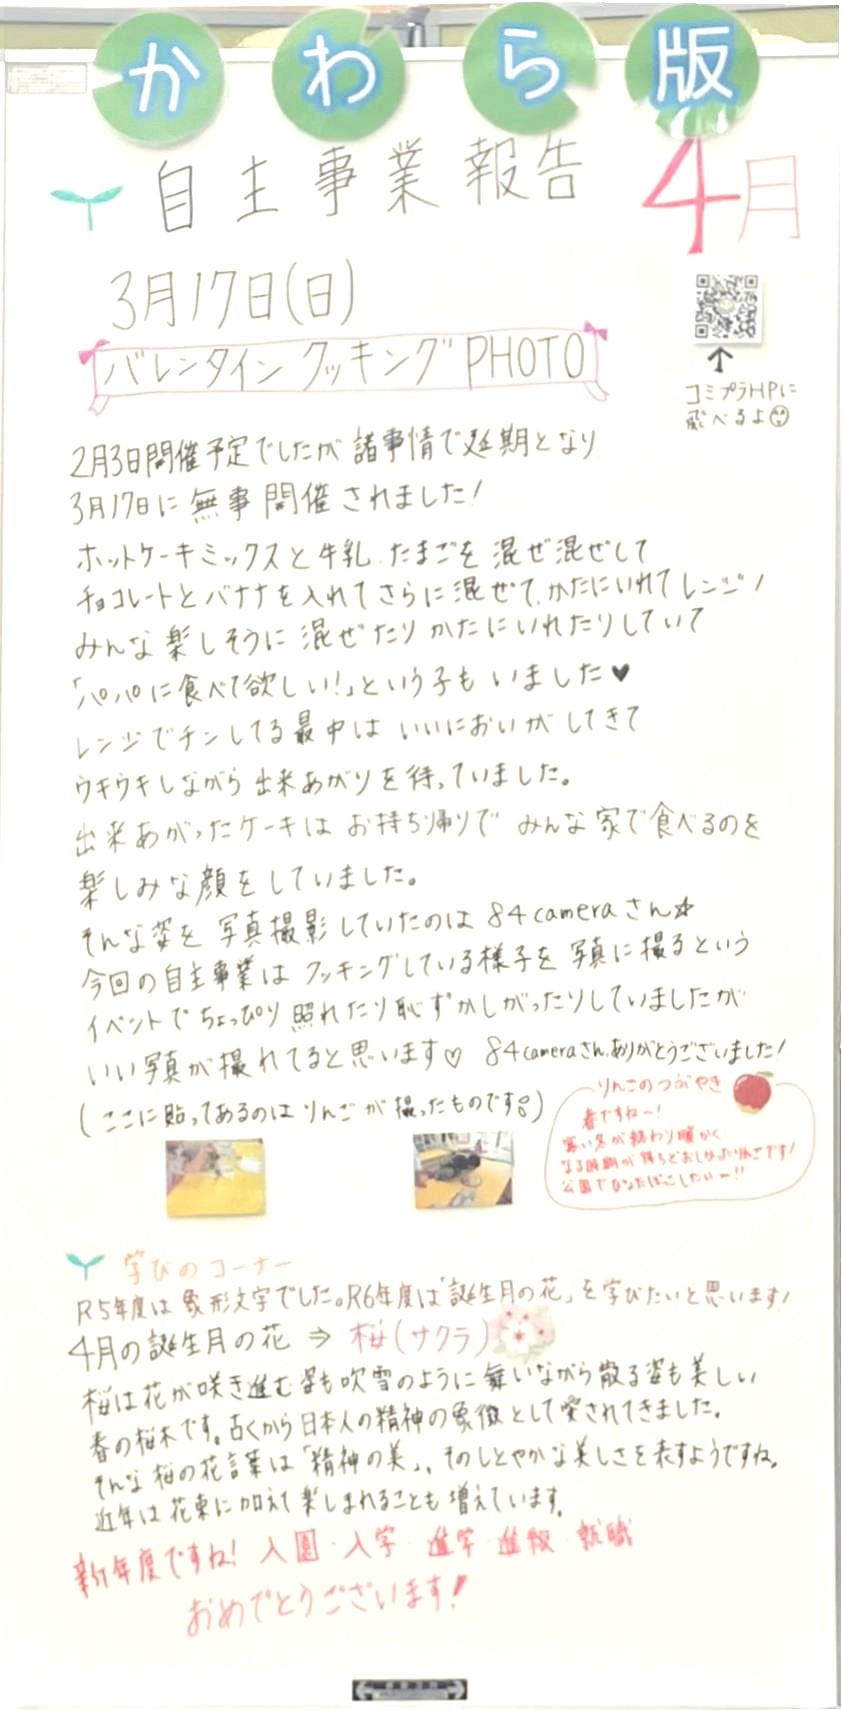 かわら版
自主事業報告 4月
3月17日(日)
バレンタイン クッキング PHOTO
コミプラHPに
飛べるよ
2月3日開催予定でしたが 諸事情で延期となり
3月17日に 無事 開催 されました!
ホットケーキミックスと牛乳、たまごを 混ぜ混ぜして
チョコレートとバナナを入れてさらに混ぜて、かたにいれてレンジ!
みんな楽しそうに 混ぜたり かたにいれたりしていて
「パパに食べて欲しい!」という子も いました♥
レンジでチンしてる最中は いいにおいが してきて
ウキウキしながら 出来あがりを待っていました。
出来あがったケーキは お持ち帰りで みんな 家で食べるのを
楽しみな顔をしていました。
そんな姿を 写真撮影していたのは 84cameraさん☆
今回の自主事業は クッキングしている様子を 写真に撮るという
イベントで ちょっぴり 照れたり恥ずかしがったりしていましたが
いい写真が撮れてると思います♡ 84cameraさん、ありがとうございました!
(ここに貼ってあるのは りんごが 撮ったものです)
りんごのつぶやき
春ですねー!
寒い冬が終わり暖かく
なる時期が待ちどおしかったりんごです!
公園でひなたぼっこしたいー!!
学びのコーナー
R5年度は 象形文字でした。R6年度は「誕生月の花」を学びたいと思います!
4月の誕生月の花 ⇒ 桜(サクラ)
桜は花が咲き進む姿も吹雪のように 舞いながら散る姿も美しい
春の桜木です。古くから日本人の精神の象徴として愛されてきました。
そんな桜の花言葉は「精神の美」、そのしとやかな美しさを表すようですね。
近年は 花束に加えて 楽しまれることも 増えています。
新年度ですね! 入園・入学・進学・進級・就職
おめでとうございます!